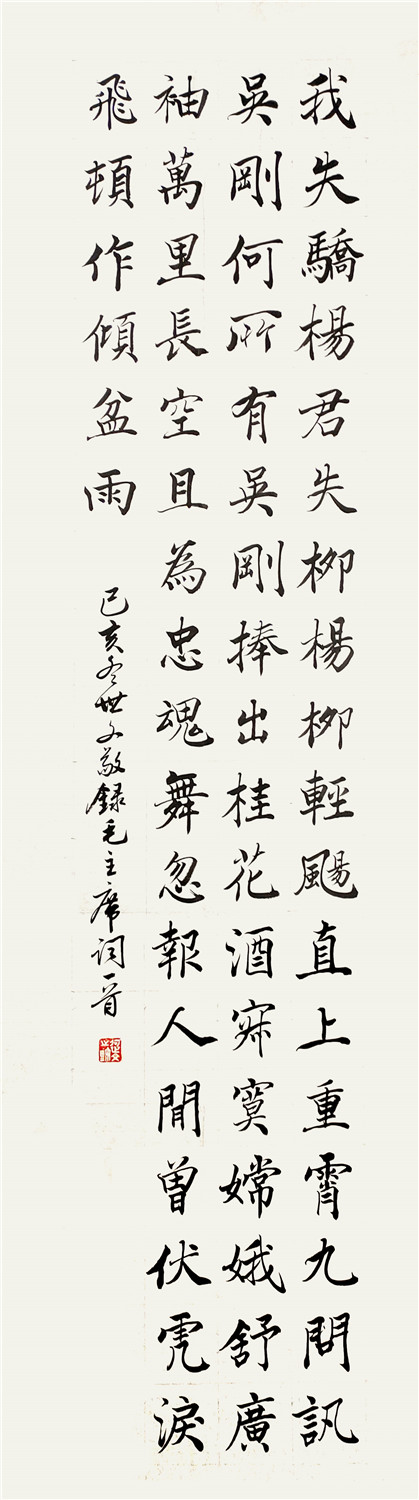 我失驕楊君失柳楊柳輕颺直上重霄九問訊
吳剛何所有吳剛捧出桂花酒寂寞嫦娥舒廣
袖萬里長空且為忠魂舞忽報人間曾伏虎淚
飛頓作傾盆雨
己亥冬世文敬録毛主席詞一首